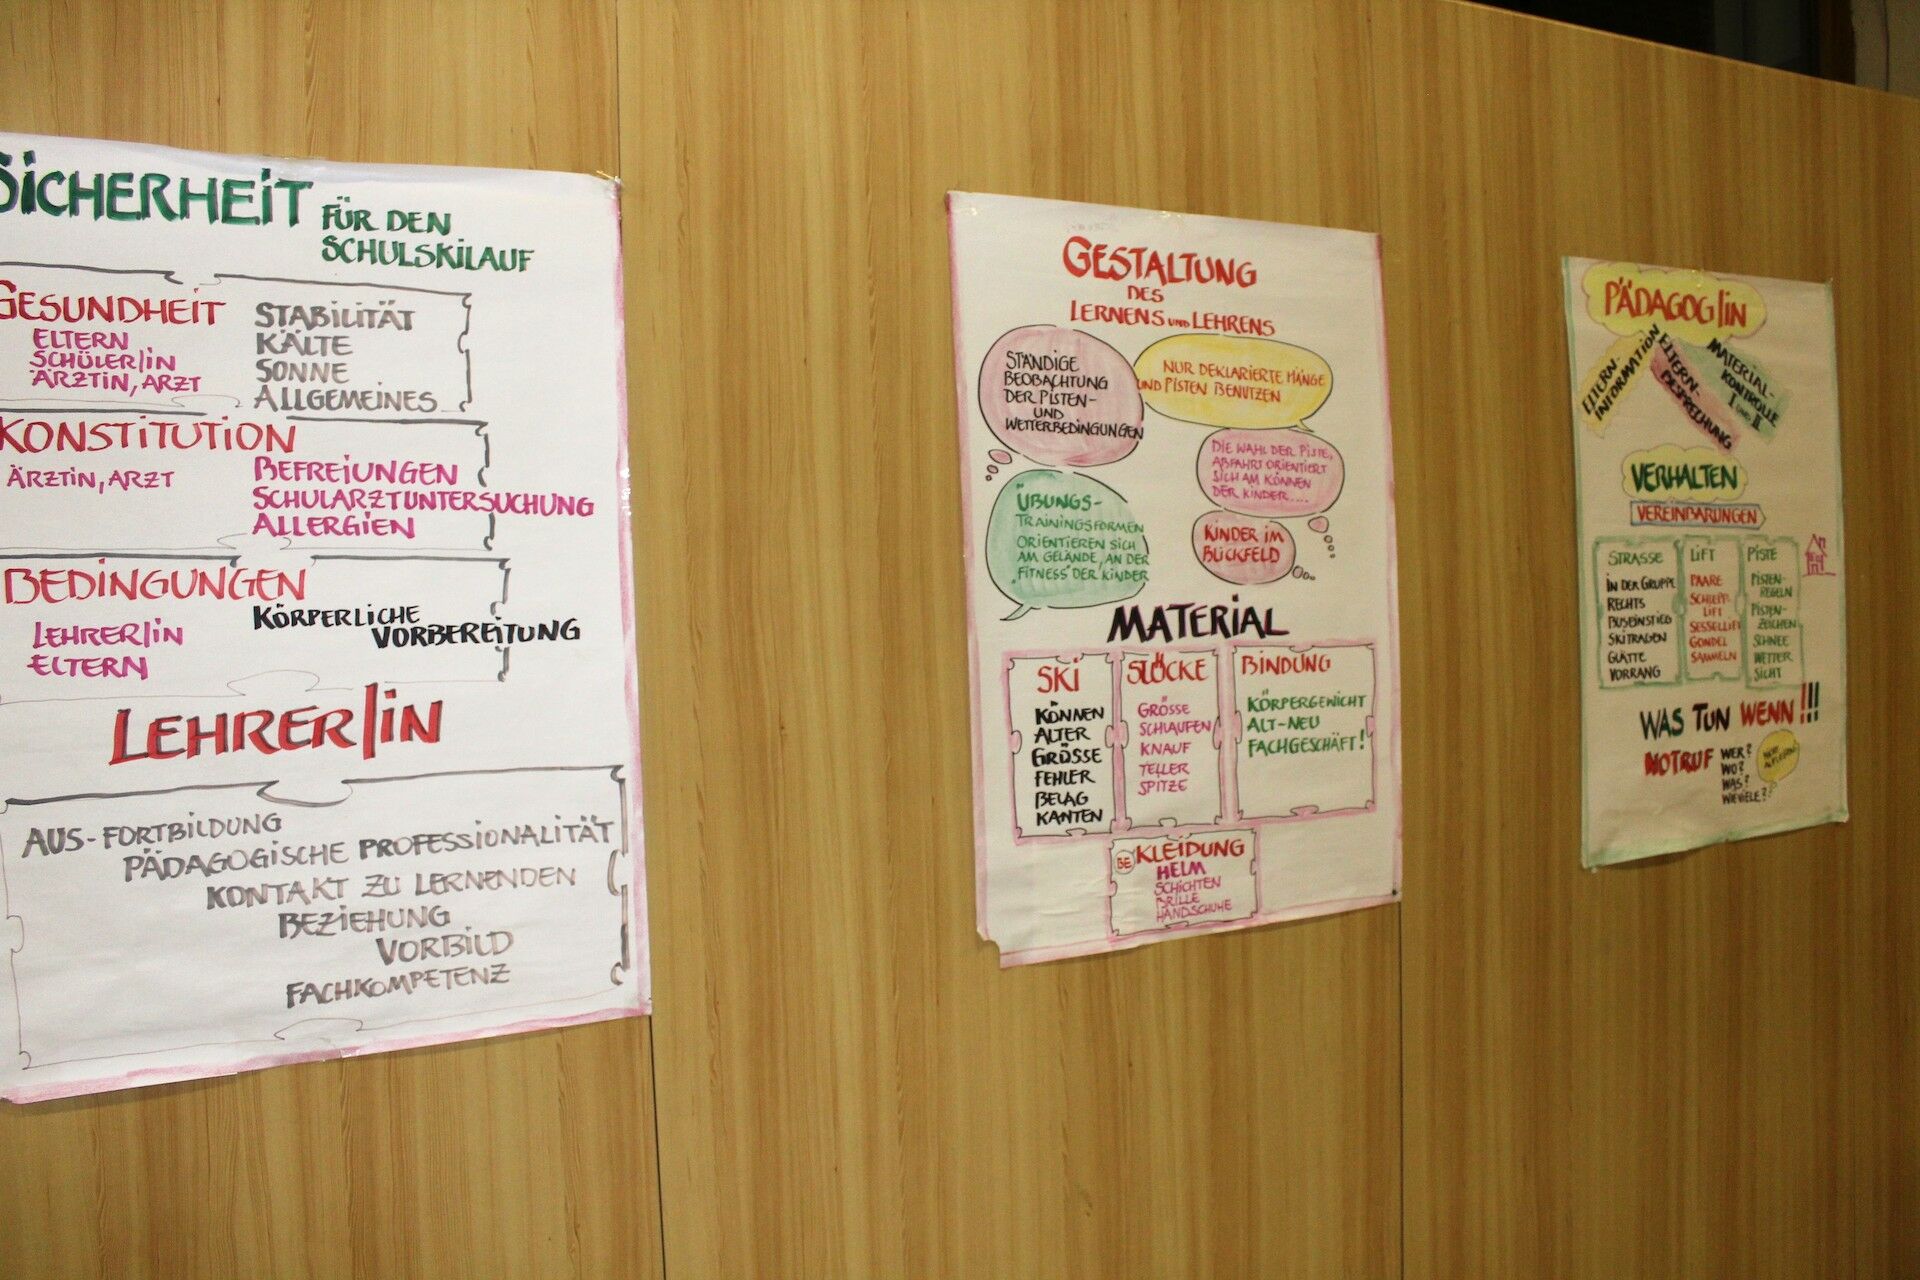 SICHERHEIT
FÜR DEN
SCHULSKILAUF
GESUNDHEIT
ELTERN
SCHÜLER/IN
ÄRZTIN, ARZT
STABILITÄT
KÄLTE
SONNE
ALLGEMEINES
KONSTITUTION
ÄRZTIN, ARZT
BEFREIUNGEN
SCHULARZTUNTERSUCHUNG
ALLERGIEN
BEDINGUNGEN
LEHRER/IN
ELTERN
KÖRPERLICHE
VORBEREITUNG
LEHRER/IN
AUS-FORTBILDUNG
PÄDAGOGISCHE PROFESSIONALITÄT
KONTAKT ZU LERNENDEN
BEZIEHUNG
VORBILD
FACHKOMPETENZ
GESTALTUNG
DES
LERNENS UND LEHRENS
STÄNDIGE
BEOBACHTUNG
DER PISTEN-
UND
WETTERBEDINGUNGEN
NUR DEKLARIERTE HÄNGE
UND PISTEN BENUTZEN
DIE WAHL DER PISTE,
ABFAHRT ORIENTIERT
SICH AM KÖNNEN
DER KINDER....
ÜBUNGS-
TRAININGSFORMEN
ORIENTIEREN SICH
AM GELÄNDE, AN DER
"FITNESS" DER KINDER
KINDER IM
BLICKFELD
MATERIAL
SKI
KÖNNEN
ALTER
GRÖSSE
FEHLER
BELAG
KANTEN
STÖCKE
GRÖSSE
SCHLAUFEN
KNAUF
TELLER
SPITZE
BINDUNG
KÖRPERGEWICHT
ALT-NEU
FACHGESCHÄFT!
BE KLEIDUNG
HELM
SCHICHTEN
BRILLE
HANDSCHUHE
PÄDAGOG/IN
ELTERN-
INFORMATION
ELTERN-
BESPRECHUNG
MATERIAL-
KONTROLLE
I UND II
VERHALTEN
VEREINBARUNGEN
STRASSE
IN DER GRUPPE
RECHTS
BUSEINSTIEG
SKITRAGEN
GLÄTTE
VORRANG
LIFT
PAARE
SCHLEPP-
LIFT
SESSELLIFT
GONDEL
SAMMELN
PISTE
PISTEN-
REGELN
PISTEN-
ZEICHEN
SCHNEE
WETTER
SICHT
WAS TUN WENN!!!
NOTRUF
WER?
WO?
WAS?
WIEVIELE?
NICHT
AUFLEGEN!